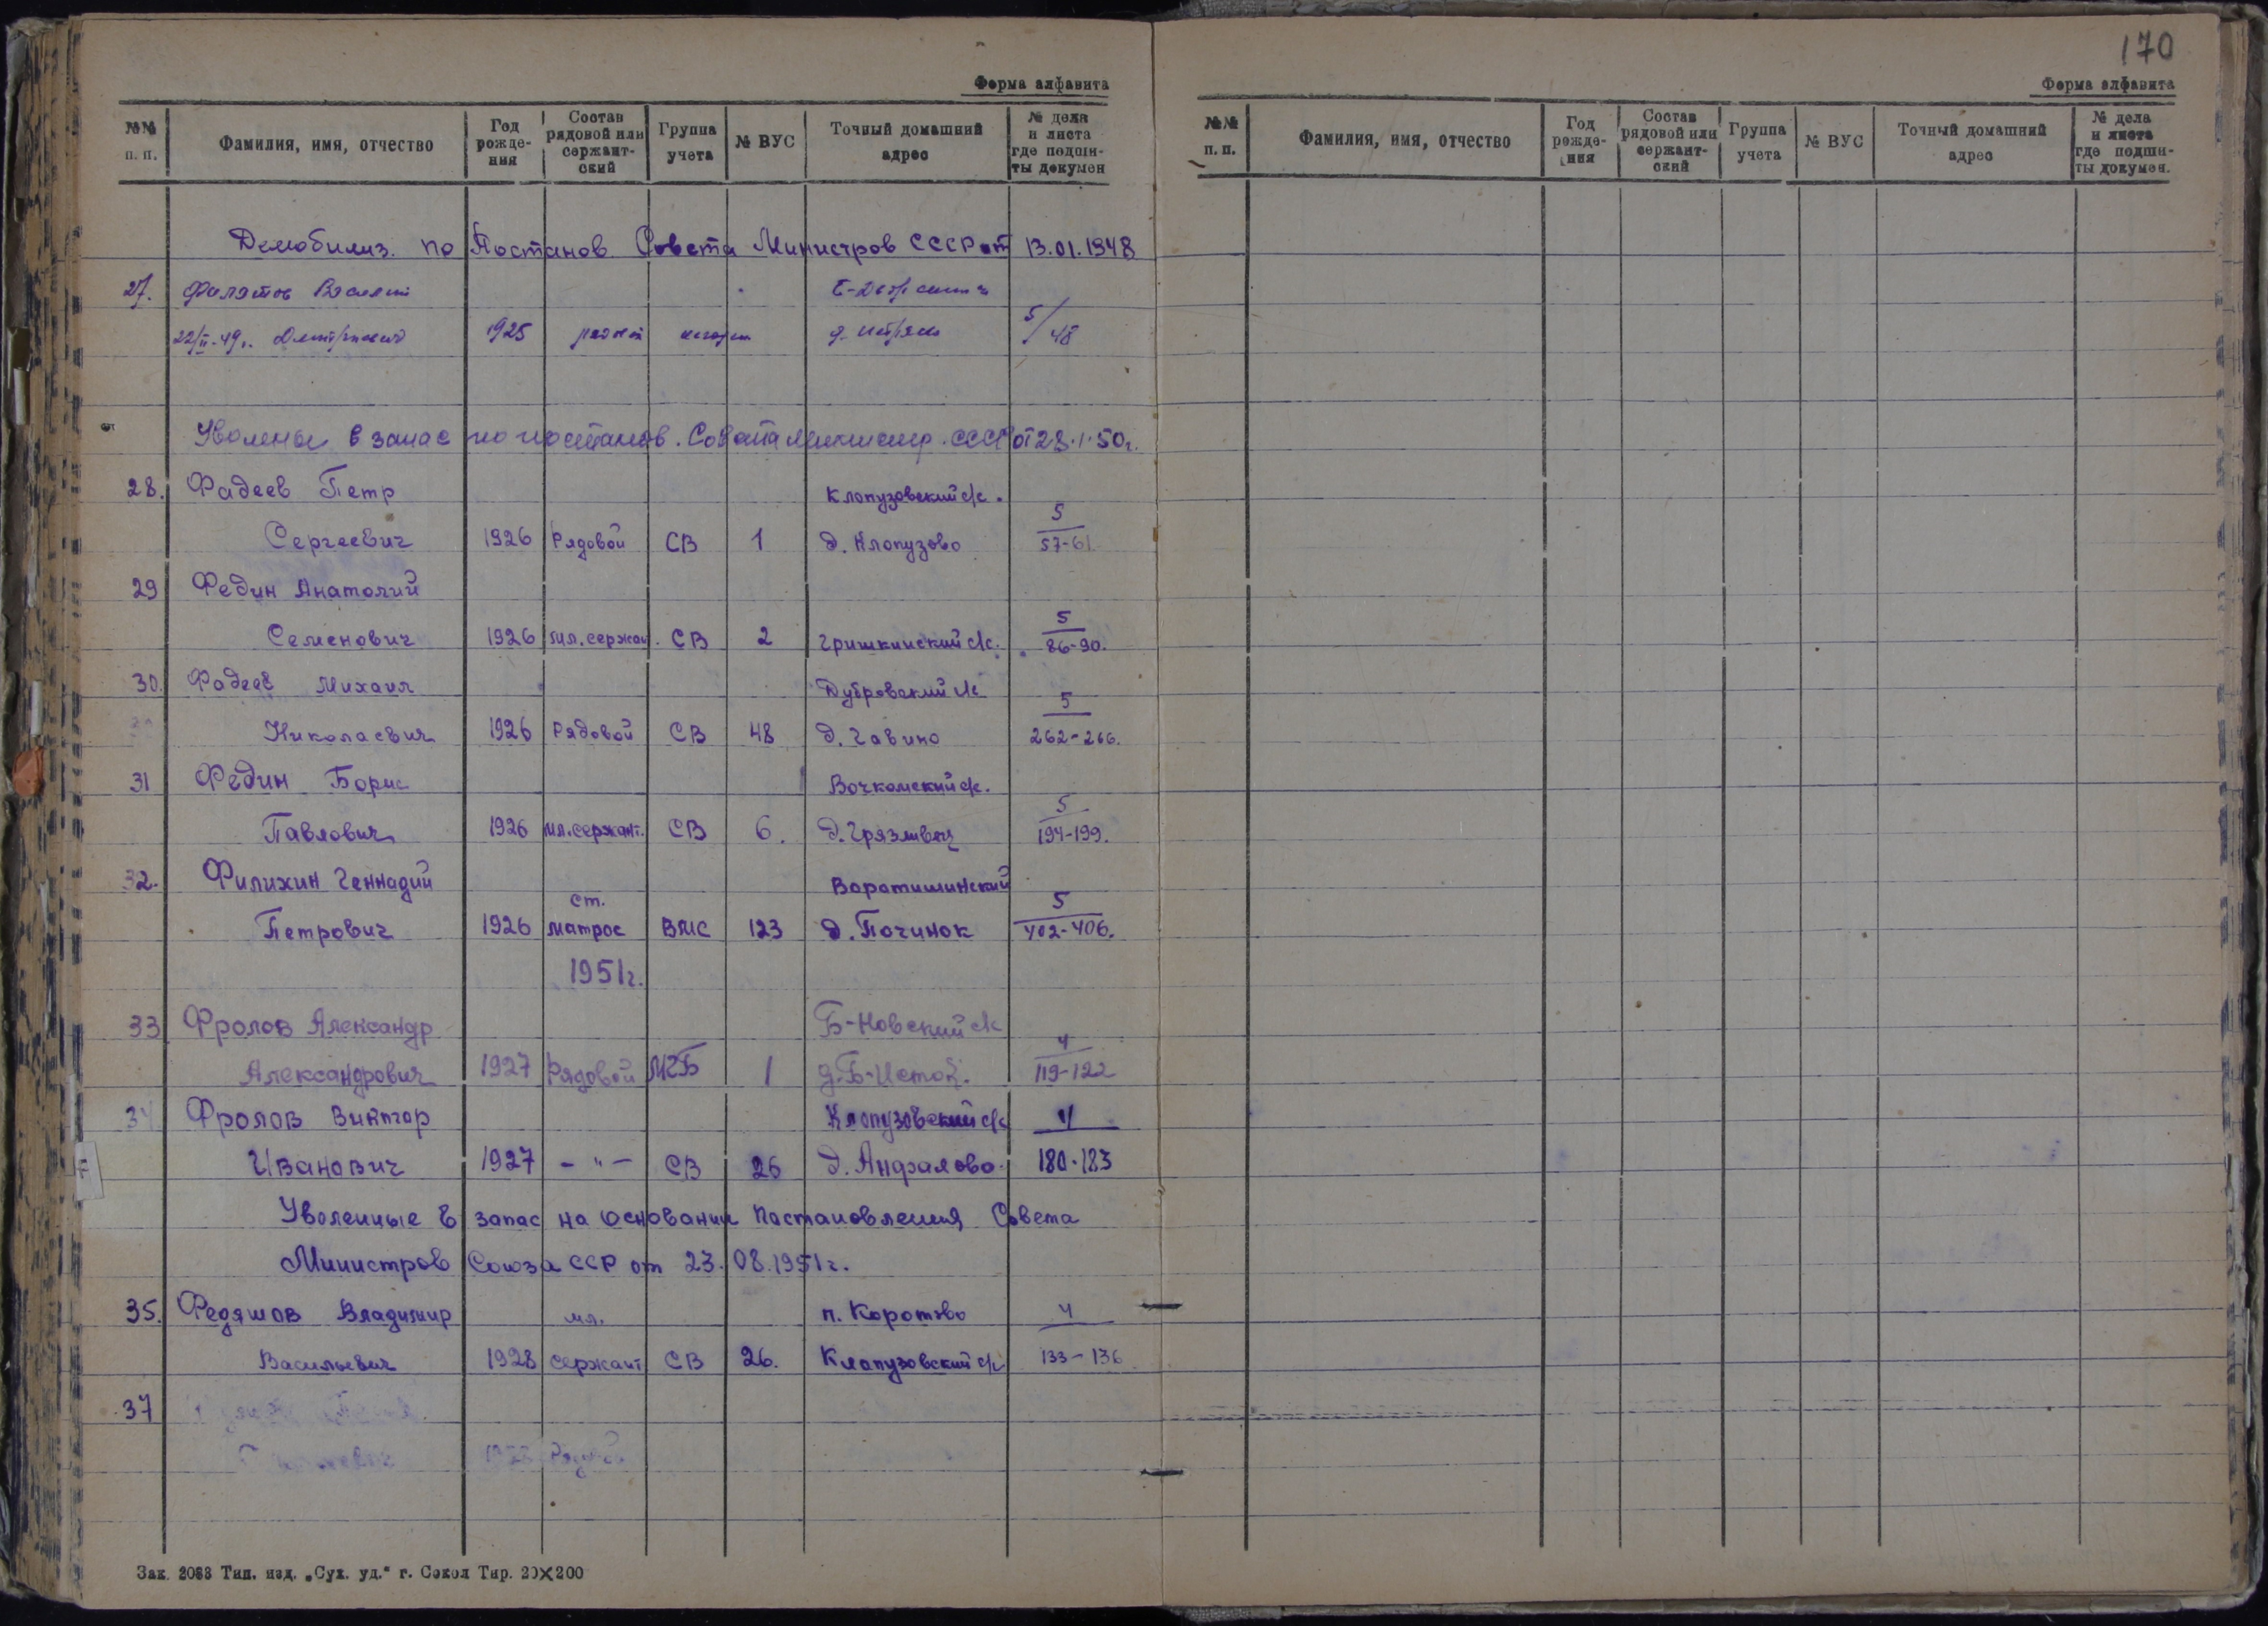 170
Форма алфавита
№№ п. п. | Фамилия, имя, отчество | Год рожде-ния | Состав рядовой или сержант-ский | Группа учета | № ВУС | Точный домашний адрес | № дела и листа где подши-ты докумен
Демобилиз. по Постанов Совета Министров СССР от 13.01.1948
27. Филатов Василий
22/II-49г. Дмитриевич 1925 рядовой 5/48
Уволены в запас по постанов. Совета Министр. СССР от 28.1.50г.
28. Фадеев Петр Клопузовский с/с.
Сергеевич 1926 Рядовой СВ 1 д. Клопузово 5/57-61
29 Федин Анатолий
Семенович 1926 мл. сержан. СВ 2 Гришкинский с/с. 5/86-90.
30. Фадеев Михаил Дубровский с/с
Николаевич 1926 Рядовой СВ 48 д. Гавино 5/262-266.
31 Федин Борис Вочкомский с/с.
Павлович 1926 мл. сержант. СВ 6. д. Грязливец 5/194-199.
32. Филихин Геннадий Воротишинский
Петрович 1926 ст. матрос ВМС 123 д. Починок 5/402-406.
1951г.
33 Фролов Александр Б-Новский с/с
Александрович 1927 Рядовой МГБ 1 д. Б-Исток. 4/119-122
34 Фролов Виктор Клопузовский с/с
Иванович 1927 -"- СВ 26 д. Анфалово. 4/180-183
Уволенные в запас на основании Постановления Совета
Министров Союза ССР от 23.08.1951г.
35. Федяшов Владимир мл. п. Коротово
Васильевич 1928 сержант СВ 26. Клопузовский с/с 4/133-136
37
Зак. 2088 Тип. изд. „Сух. уд.“ г. Сокол Тир. 20×200
Форма алфавита
№№ п. п. | Фамилия, имя, отчество | Год рожде-ния | Состав рядовой или сержант-ский | Группа учета | № ВУС | Точный домашний адрес | № дела и листа где подши-ты докумен.